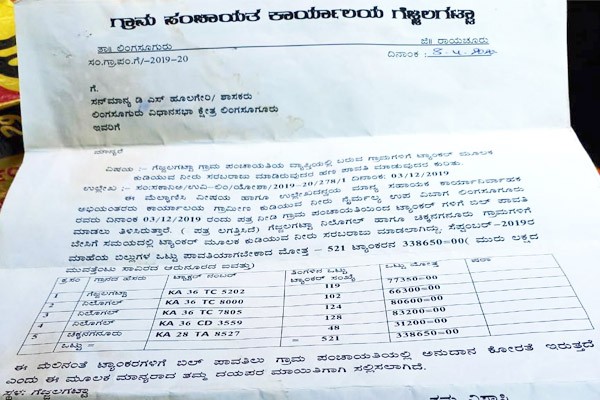 ಗ್ರಾಮ ಪಂಚಾಯತ ಕಾರ್ಯಾಲಯ ಗೆಜ್ಜಲಗಟ್ಟಾ
ತಾ: ಲಿಂಗಸೂಗುರು ಜಿ: ರಾಯಚೂರು
ಸಂ.ಗ್ರಾ.ಪಂ.ಗೆ/-2019-20 ದಿನಾಂಕ :
ಗೆ.
ಸನ್ಮಾನ್ಯ ಡಿ ಎಸ್ ಹೂಲಗೇರಿ/ ಶಾಸಕರು
ಲಿಂಗಸೂಗುರು ವಿಧಾನಸಭಾ ಕ್ಷೇತ್ರ ಲಿಂಗಸೂಗೂರು
ಇವರಿಗೆ
ಮಾನ್ಯರೆ
ವಿಷಯ :- ಗೆಜ್ಜಲಗಟ್ಟಾ ಗ್ರಾಮ ಪಂಚಾಯತಿಯ ವ್ಯಾಪ್ತಿಯಲ್ಲಿ ಬರುವ ಗ್ರಾಮಗಳಿಗೆ ಟ್ಯಾಂಕರ್ ಮೂಲಕ
ಕುಡಿಯುವ ನೀರು ಸರಬರಾಜು ಮಾಡಿರುವುದರ ಹಣ ಪಾವತಿ ಮಾಡುವುದರ ಕುರಿತು.
ಉಲ್ಲೇಖ :- ಸಂ:ಸಕಾನಿಅ/ಉವಿ-ಲಿಂ/ಯೋಶಾ/2019-20/278/1 ದಿನಾಂಕ: 03/12/2019
ಈ ಮೆಲ್ಕಾಣಿಸಿ ವಿಷಯ ಹಾಗೂ ಉಲ್ಲೇಖದನ್ವಯ ಮಾನ್ಯ ಸಹಾಯಕ ಕಾರ್ಯನಿರ್ವಾಹಕ
ಅಭಿಯಂತರರು ಕಾರ್ಯಾಲಯ ಗ್ರಾಮೀಣ ಕುಡಿಯುವ ನೀರು ನೈರ್ಮಲ್ಯ ಉಪ ವಿಭಾಗ ಲಿಂಗಸೂಗೂರು
ರವರು ದಿನಾಂಕ 03/12/2019 ರಂದು ಪತ್ರ ನೀಡಿ ಗ್ರಾಮ ಪಂಚಾಯತಿಯಿಂದ ಟ್ಯಾಂಕರ್ ಗಳಿಗೆ ಬಿಲ್ ಪಾವತಿ
ಮಾಡಲು ತಿಳಿಸಿರುತ್ತಾರೆ. ( ಪತ್ರ ಲಗತ್ತಿಸಿದೆ) ಗೆಜ್ಜಲಗಟ್ಟಾ ನಿಲೊಗಲ್ ಹಾಗೂ ಚಿಕ್ಕನಗನೂರು ಗ್ರಾಮಗಳಿಗೆ
ಬೇಸಿಗೆ ಸಮಯದಲ್ಲಿ ಟ್ಯಾಂಕರ ಮೂಲಕ ಕುಡಿಯುವ ನೀರು ಸರಬರಾಜು ಮಾಡಲಾಗಿದ್ದು, ಸೆಪ್ಟಂಬರ್-2019ರ
ಮಾಹೆಯ ಬಿಲ್ಲುಗಳ ಒಟ್ಟು ಪಾವತಿಯಾಗಬೇಕಾದ ಮೋತ್ತ – 521 ಟ್ಯಾಂಕರನ 338650=00( ಮುರು ಲಕ್ಷದ
ಮುವತ್ತೆಂಟು ಸಾವಿರದ ಆರುನೂರದ ಐವತ್ತು)
ಕ್ರ.ಸಂ ಗ್ರಾಮದ ಹೆಸರು ಟ್ಯಾಕ್ಟರ್ ನಂಬರ್ ತಿಂಗಳಿನ ಒಟ್ಟು ಟ್ಯಾಂಕರ್ ಸಂಖ್ಯೆ ಒಟ್ಟು ಮೋತ್ತ ಷರಾ
1 ಗೆಜ್ಜಲಗಟ್ಟಾ KA 36 TC 5202 119 77350=00
2 ನಿಲೊಗಲ್ KA 36 TC 8000 102 66300=00
3 ನಿಲೊಗಲ್ KA 36 TC 7805 124 80600=00
4 ನಿಲೊಗಲ್ KA 36 CD 3559 128 83200=00
5 ಚಿಕ್ಕನಗನೂರು KA 28 TA 8527 48 31200=00
ಒಟ್ಟು = = 521 338650=00
ಈ ಮೆಲಿನಂತೆ ಟ್ಯಾಂಕರಗಳಿಗೆ ಬಿಲ್ ಪಾವತಿಲು ಗ್ರಾಮ ಪಂಚಾಯತಿಯಲ್ಲಿ ಅನುದಾನ ಕೋರತೆ ಇರುತ್ತದೆ
ಎಂದು ಈ ಮೂಲಕ ಮಾನ್ಯರಾದ ತಮ್ಮ ದಯಪರ ಮಾಯಿತಿಗಾಗಿ ಸಲ್ಲಿಸಲಾಗಿದೆ.
ಸ್ಥಳ: ಗೆಜ್ಜಲಗಟ್ಟಾ
ತಮ್ಮ ವಿಶ್ವಾಸಿ